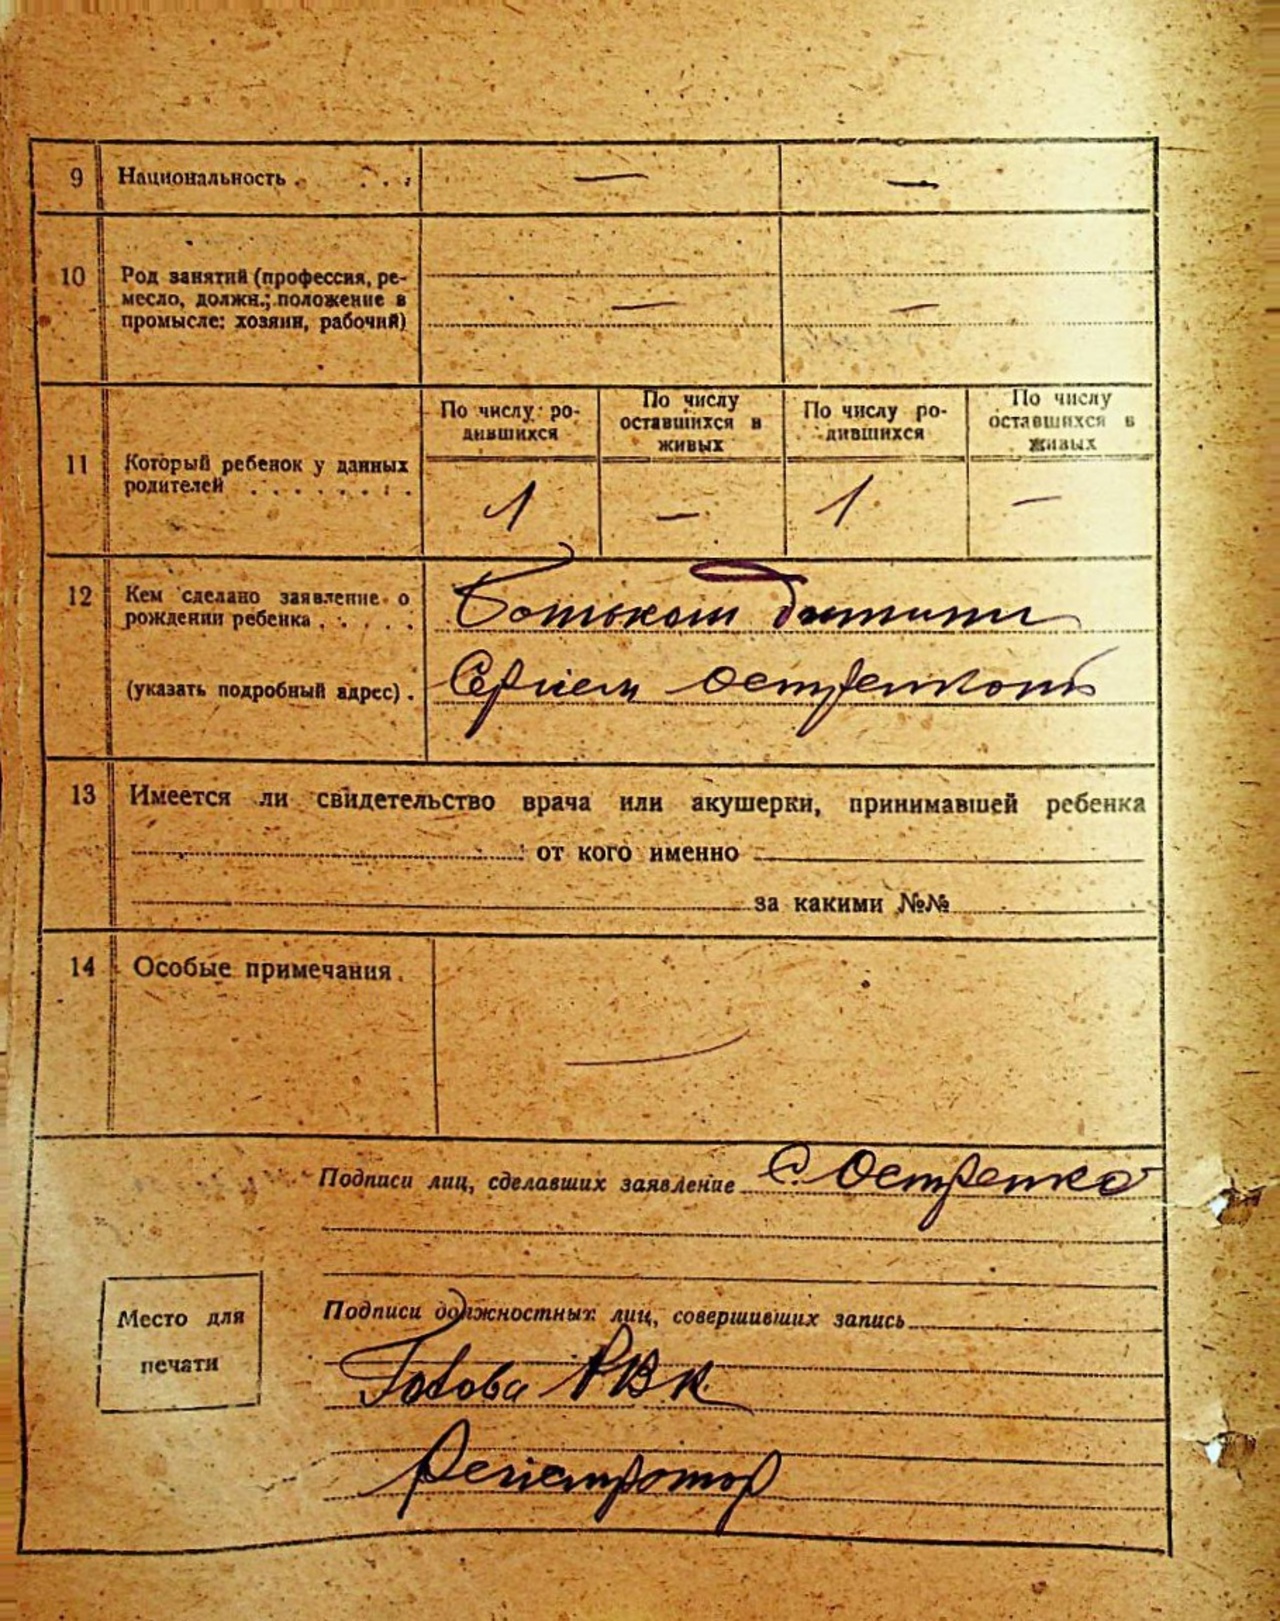 9 Национальность . . . . — —
10 Род занятий (профессия, ре-
месло, должн.; положение в
промысле: хозяин, рабочий) — —
По числу ро-
дившихся
По числу
оставшихся в
живых
По числу ро-
дившихся
По числу
оставшихся в
живых
11 Который ребенок у данных
родителей . . . . . . . .
1 — 1 —
12 Кем сделано заявление о
рождении ребенка . . . . . Батьком дитини
(указать подробный адрес) . Сергієм
13 Имеется ли свидетельство врача или акушерки, принимавшей ребенка
от кого именно
за какими №№
14 Особые примечания . —
Подписи лиц, сделавших заявление С. Остренко
Подписи должностных лиц, совершивших запись
Место для
печати
Голова РВК
Регистратор